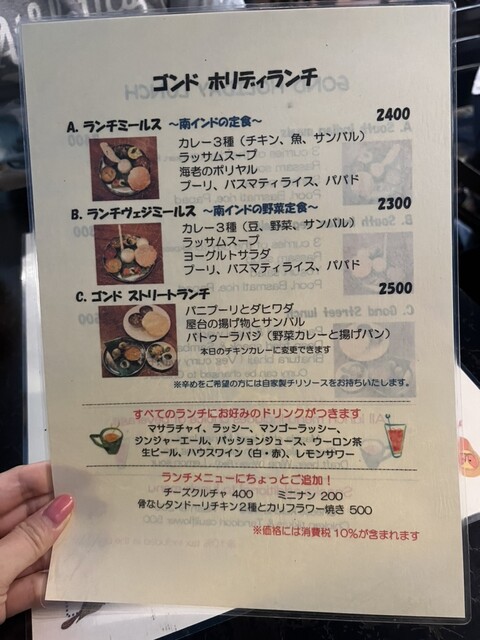 ゴンド ホリディランチ
A. ランチミールス ～南インドの定食～ 2400
カレー３種（チキン、魚、サンバル）
ラッサムスープ
海老のポリヤル
プーリ、バスマティライス、パパド
B. ランチヴェジミールス ～南インドの野菜定食～ 2300
カレー３種（豆、野菜、サンバル）
ラッサムスープ
ヨーグルトサラダ
プーリ、バスマティライス、パパド
C. ゴンド ストリートランチ 2500
パニプーリとダヒワダ
屋台の揚げ物とサンバル
バトゥーラバジ（野菜カレーと揚げパン）
本日のチキンカレーに変更できます
※辛めをご希望の方には自家製チリソースをお持ちいたします。
すべてのランチにお好みのドリンクがつきます
マサラチャイ、ラッシー、マンゴーラッシー、
ジンジャーエール、パッションジュース、ウーロン茶
生ビール、ハウスワイン（白・赤）、レモンサワー
ランチメニューにちょっとご追加！
チーズクルチャ 400 ミニナン 200
骨なしタンドーリチキン２種とカリフラワー焼き 500
※価格には消費税 10%が含まれます